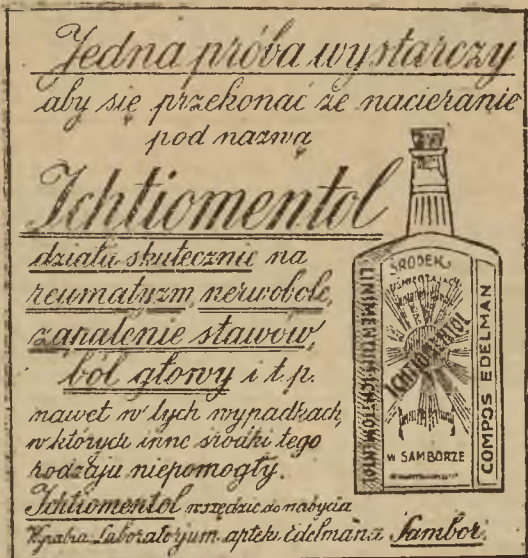 Jedna próba wystarczy
aby się przekonać że nacieranie
pod nazwą
Ichtiomentol
działa skutecznie na
reumatyzm, nerwobole,
zapalenie stawów,
ból głowy i t. p.
nawet w tych wypadkach,
w których inne środki tego
rodzaju niepomogły.
Ichtiomentol wszędzie do nabycia
Laboratorjum apteki Edelmana Sambor.
ŚRODEK
ICHTIOMENTOL
W SAMBORZE
COMPOS EDELMAN